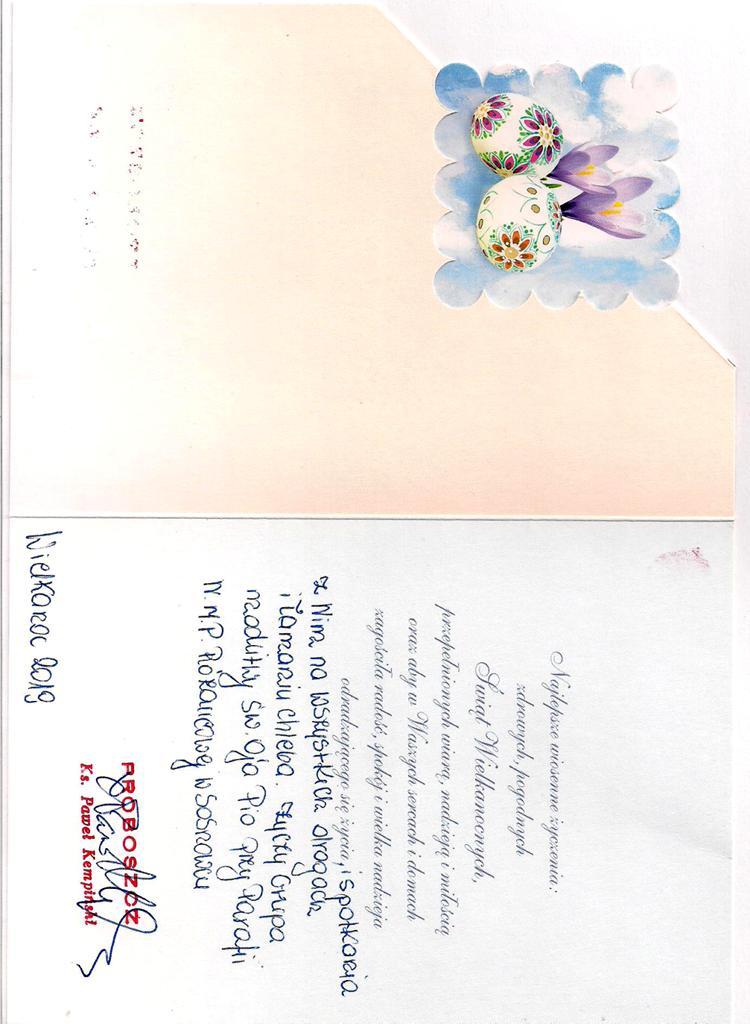 Najlepsze wiosenne życzenia:
zdrowych, pogodnych
Świąt Wielkanocnych,
przepełnionych wiarą, nadzieją i miłością
oraz aby w Waszych sercach i domach
zagościła radość, spokój i wielka nadzieja
odradzającego się życia, i spotkania
z Nim na wszystkich drogach
i łamaniu chleba. życzy Grupa
modlitwy św. Ojca Pio przy Parafii
N.M.P. Różańcowej w Sosnowcu
PROBOSZCZ
Ks. Paweł Kempiński
Wielkanoc 2019